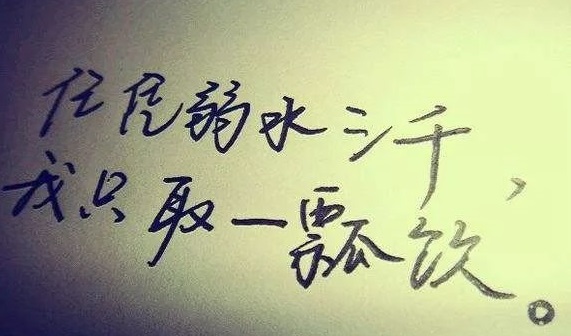 任凭弱水三千，
我只取一瓢饮。